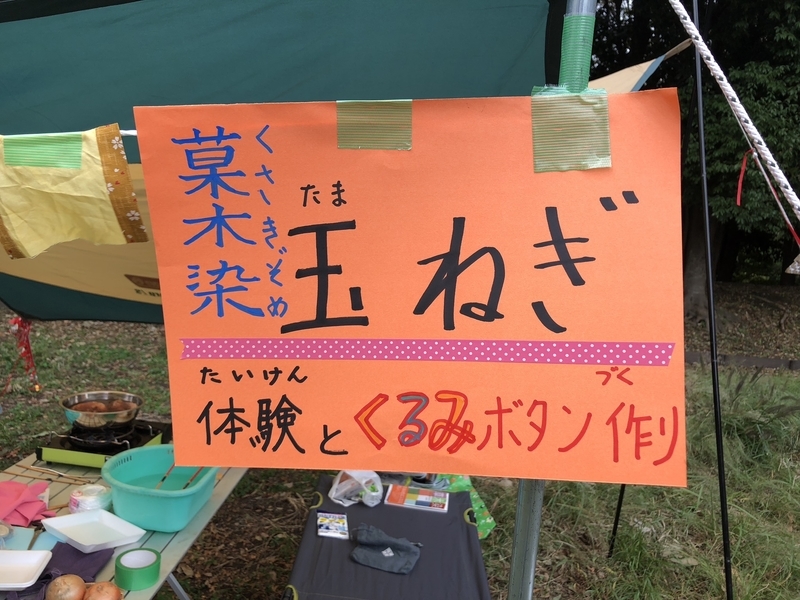 菓木染
くさきぞめ
たま
玉ねぎ
たいけん づく
体験とくるみボタン作り